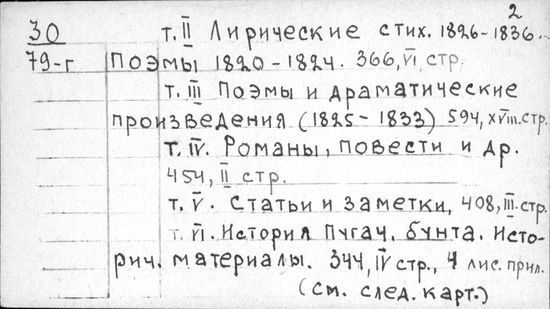 2
30 т. II Лирические стих. 1826-1836.
79-г Поэмы 1820-1824. 366, VI стр.
т. III Поэмы и драматические
произведения (1825-1833) 594, XVIII. стр.
т. IV. Романы, повести и др.
454, II стр.
т. V. Статьи и заметки, 408, III. стр.
т. VI. История Пугач. бунта. Исто-
рич. материалы. 344, IV стр., 4 лис. прил.
(см. след. карт.)